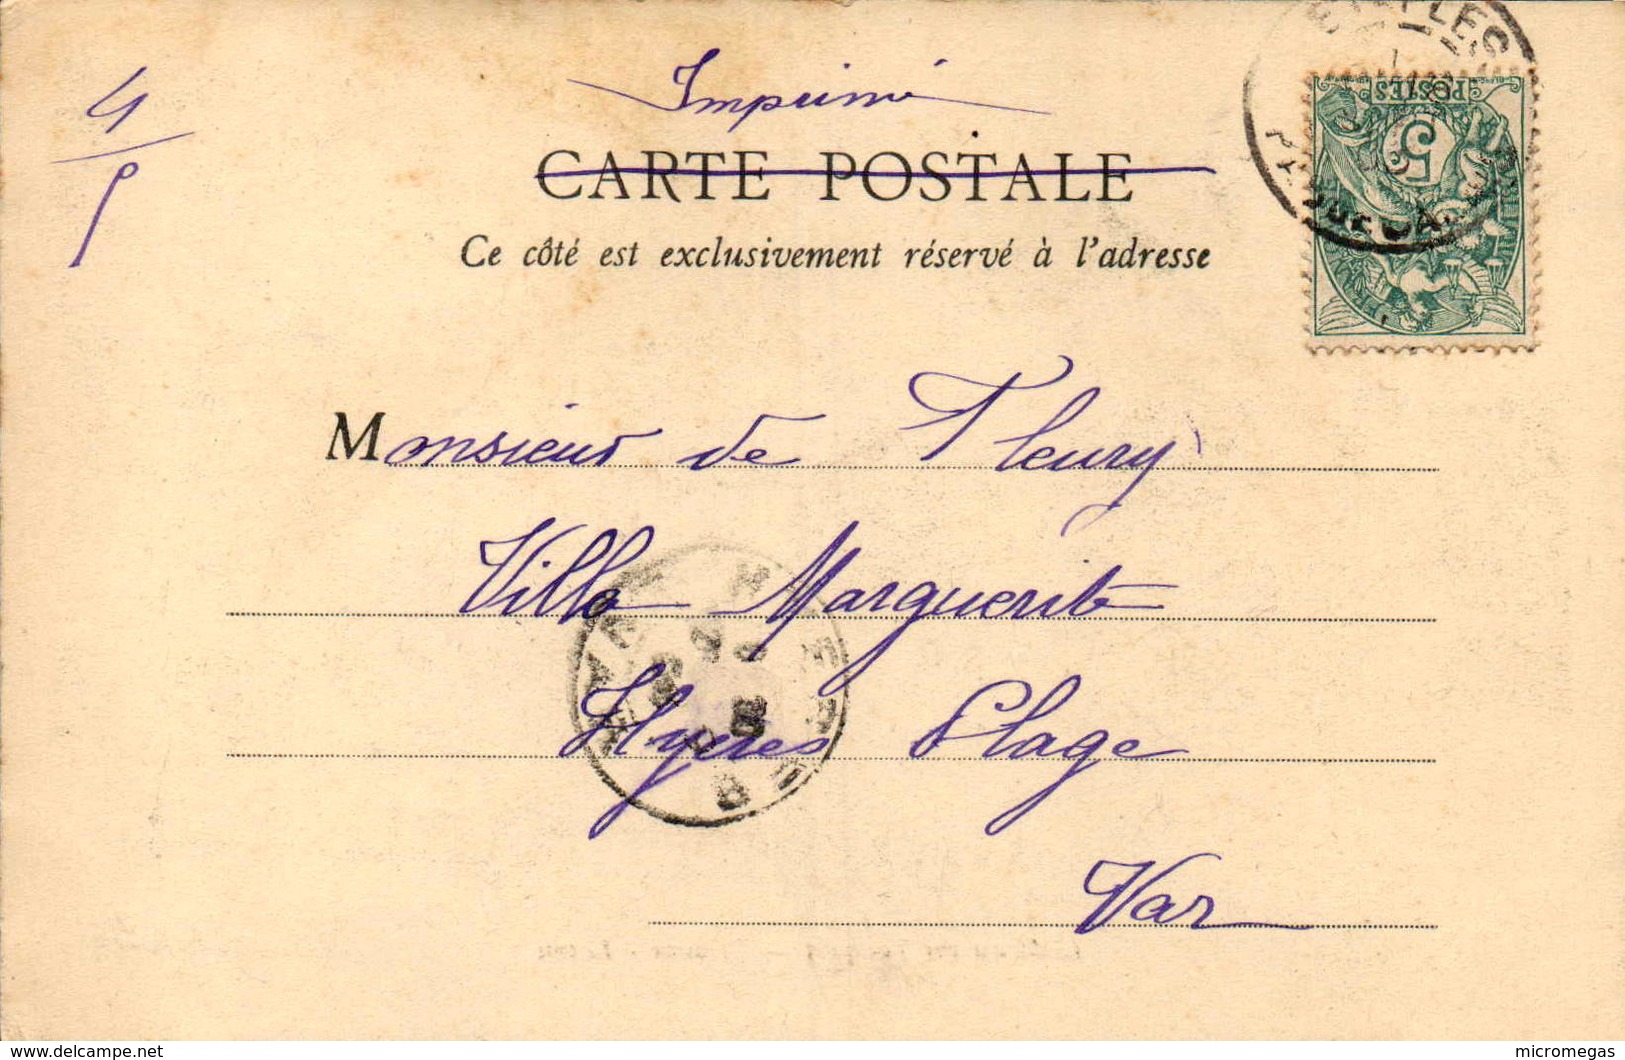 Imprimé
4
P
CARTE POSTALE
POSTES
5
Ce côté est exclusivement réservé à l'adresse
Monsieur de Fleury
Villa Marguerite
Hyères Plage
Var
delcampe.net
micromegas